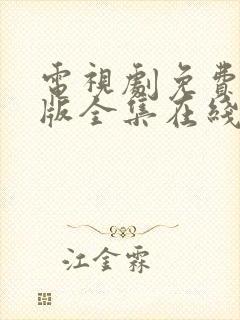 電視劇免費
版全集在綫
江金霖